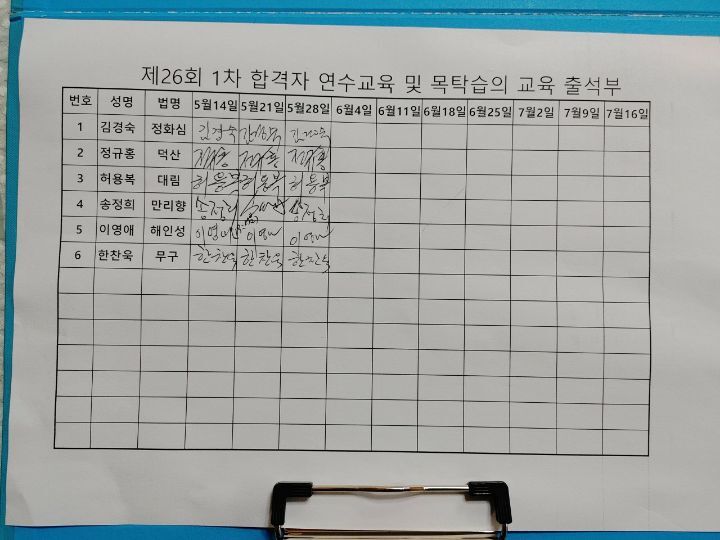 제26회 1차 합격자 연수교육 및 목탁습의 교육 출석부
번호 성명 법명 5월14일 5월21일 5월28일 6월4일 6월11일 6월18일 6월25일 7월2일 7월9일 7월16일
1 김경숙 정화심 김경숙 김경숙 김경숙
2 정규홍 덕산 정규홍 정규홍 정규홍
3 허용복 대림 허용복 허용복 허용복
4 송정희 만리향 송정희 송정희
5 이영애 해인성 이영애 이영애 이영애
6 한찬욱 무구 한찬욱 한찬욱 한찬욱